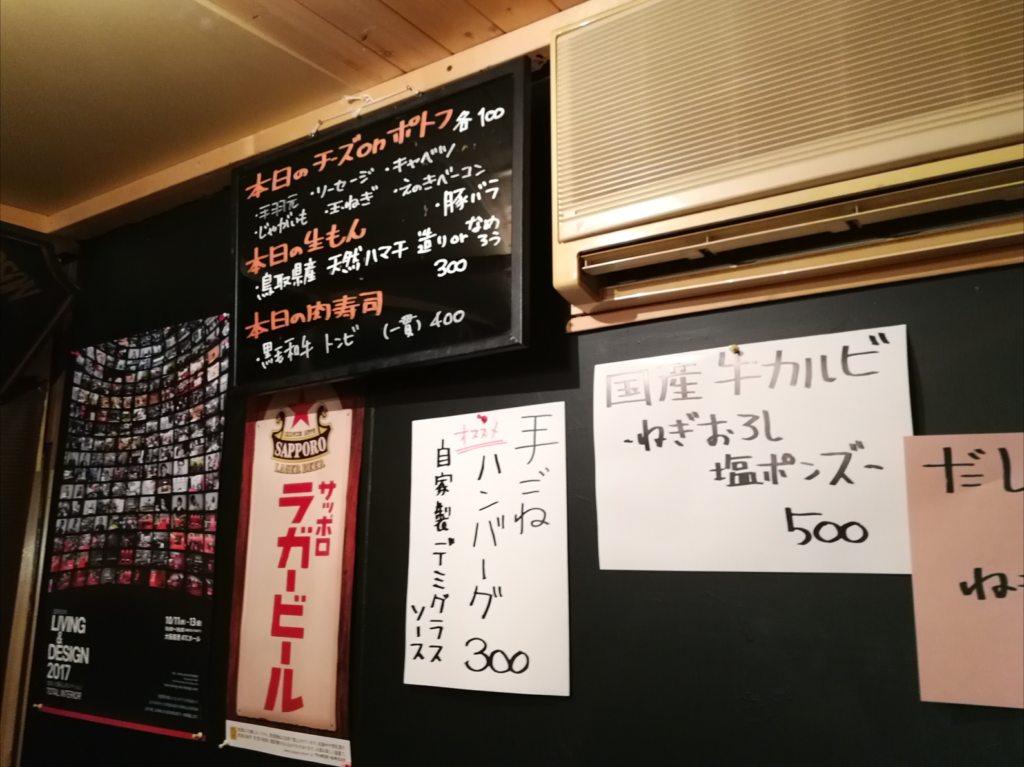 本日のチーズonポトフ 各100
・手羽元 ・ソーセージ ・キャベツ
・じゃがいも ・玉ねぎ ・えのきベーコン
・豚バラ
本日の生もん
・鳥取県産 天然ハマチ 造りorなめろう
300
本日の肉寿司
・黒毛和牛 トンビ (一貫) 400
LIVING
&
DESIGN
2017
TOTAL INTERIOR
10/11 - 13
SAPPORO
LAGER BEER
サッポロ
ラガービール
オススメ
手ごね
ハンバーグ
300
自家製デミグラス
ソース
国産牛カルビ
-ねぎおろし
塩ポンズ-
500
だし